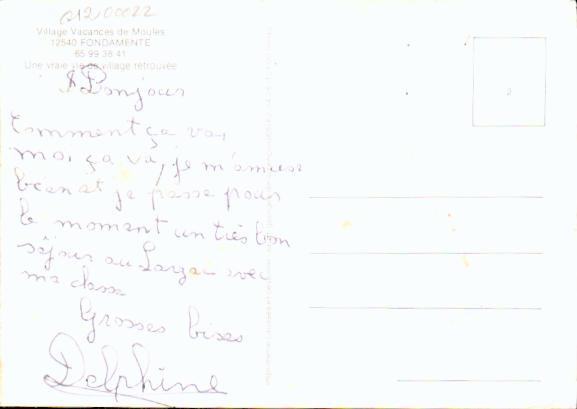 01200022
Village Vacances de Moules
12540 FONDAMENTE
65 99 38 41
Une vraie vie de village retrouvée
Bonjour
Comment ça va,
moi ça va, je m'amuse
bien et je passe pour
le moment un très bon
séjour au Larzac avec
ma classe
Grosses bises
Delphine